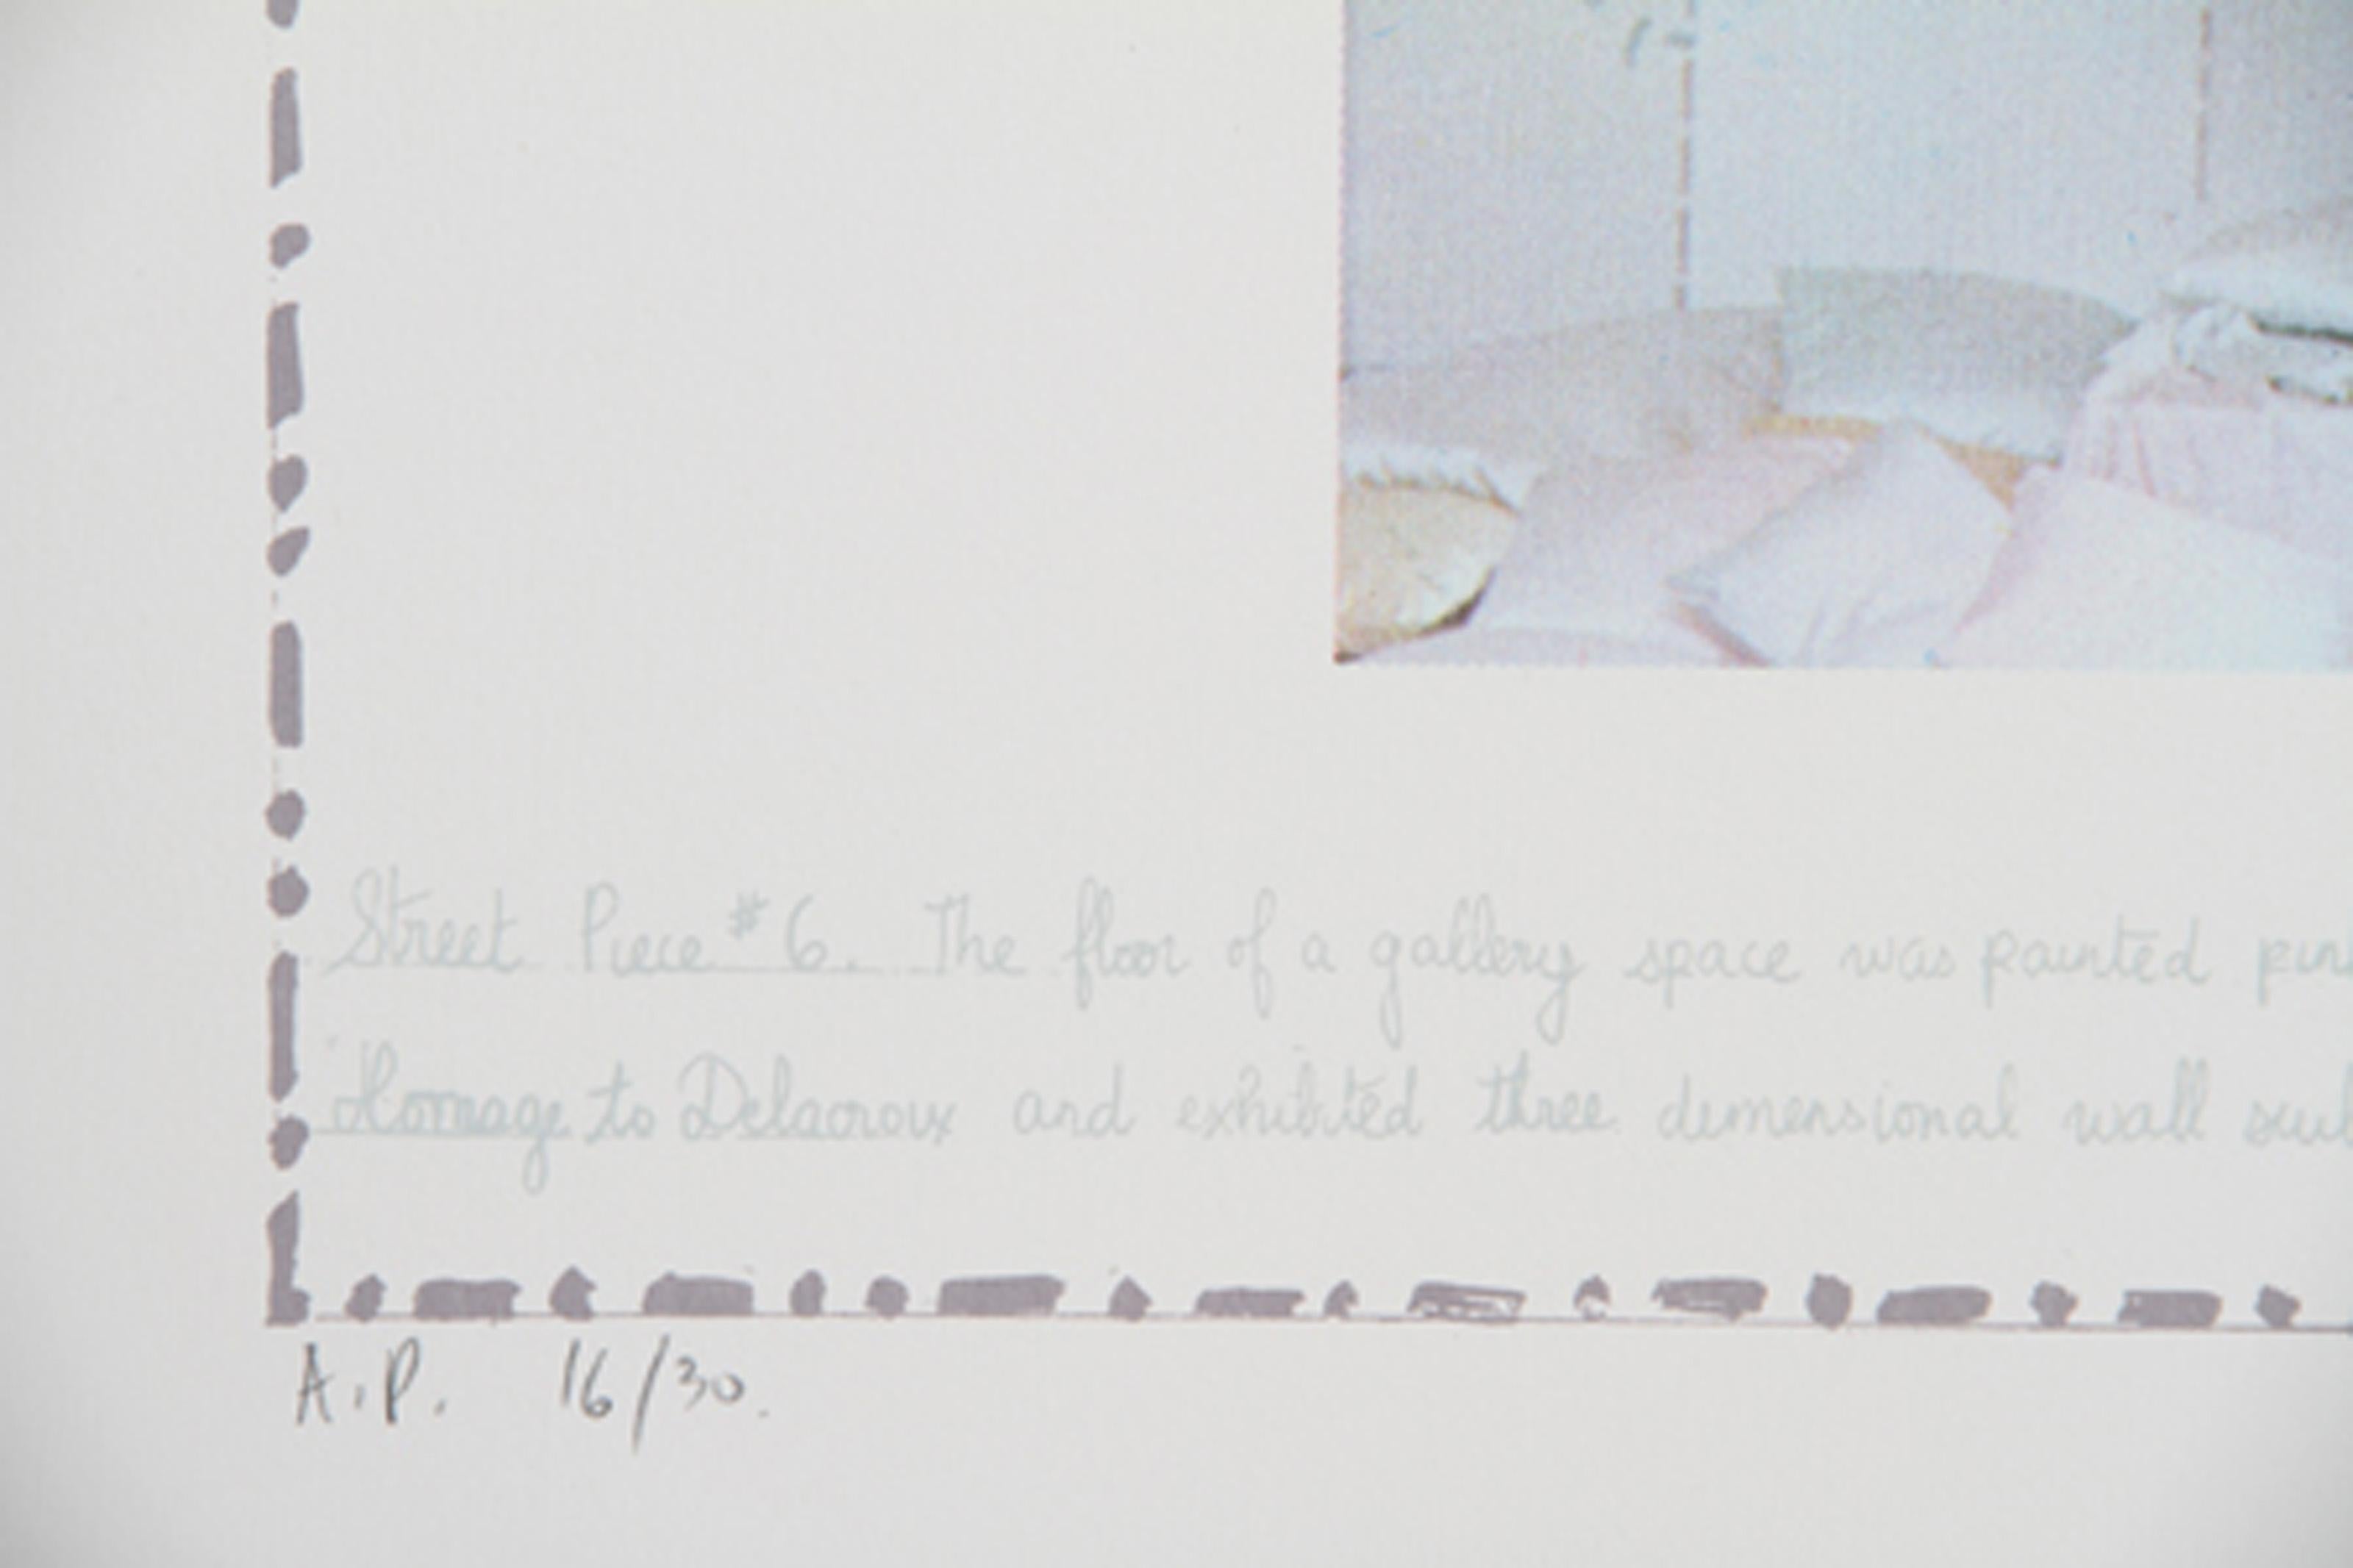 Street Piece #6. The floor of a gallery space was painted
Homage to Delacroix and exhibited three dimensional wall
A.P. 16/30.